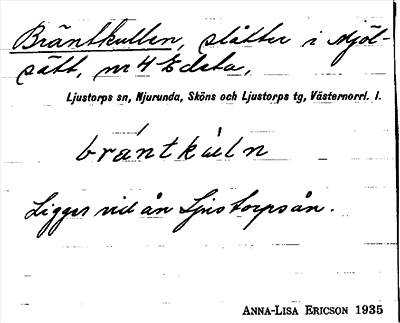 Bräntkullen, slåtter i Mjöl-
sätt, nr 4 Edsta,
Ljustorps sn, Njurunda, Sköns och Ljustorps tg, Västernorrl. l.
brántkùln
Ligger vid ån Ljustorpsån.
ANNA-LISA ERICSON 1935